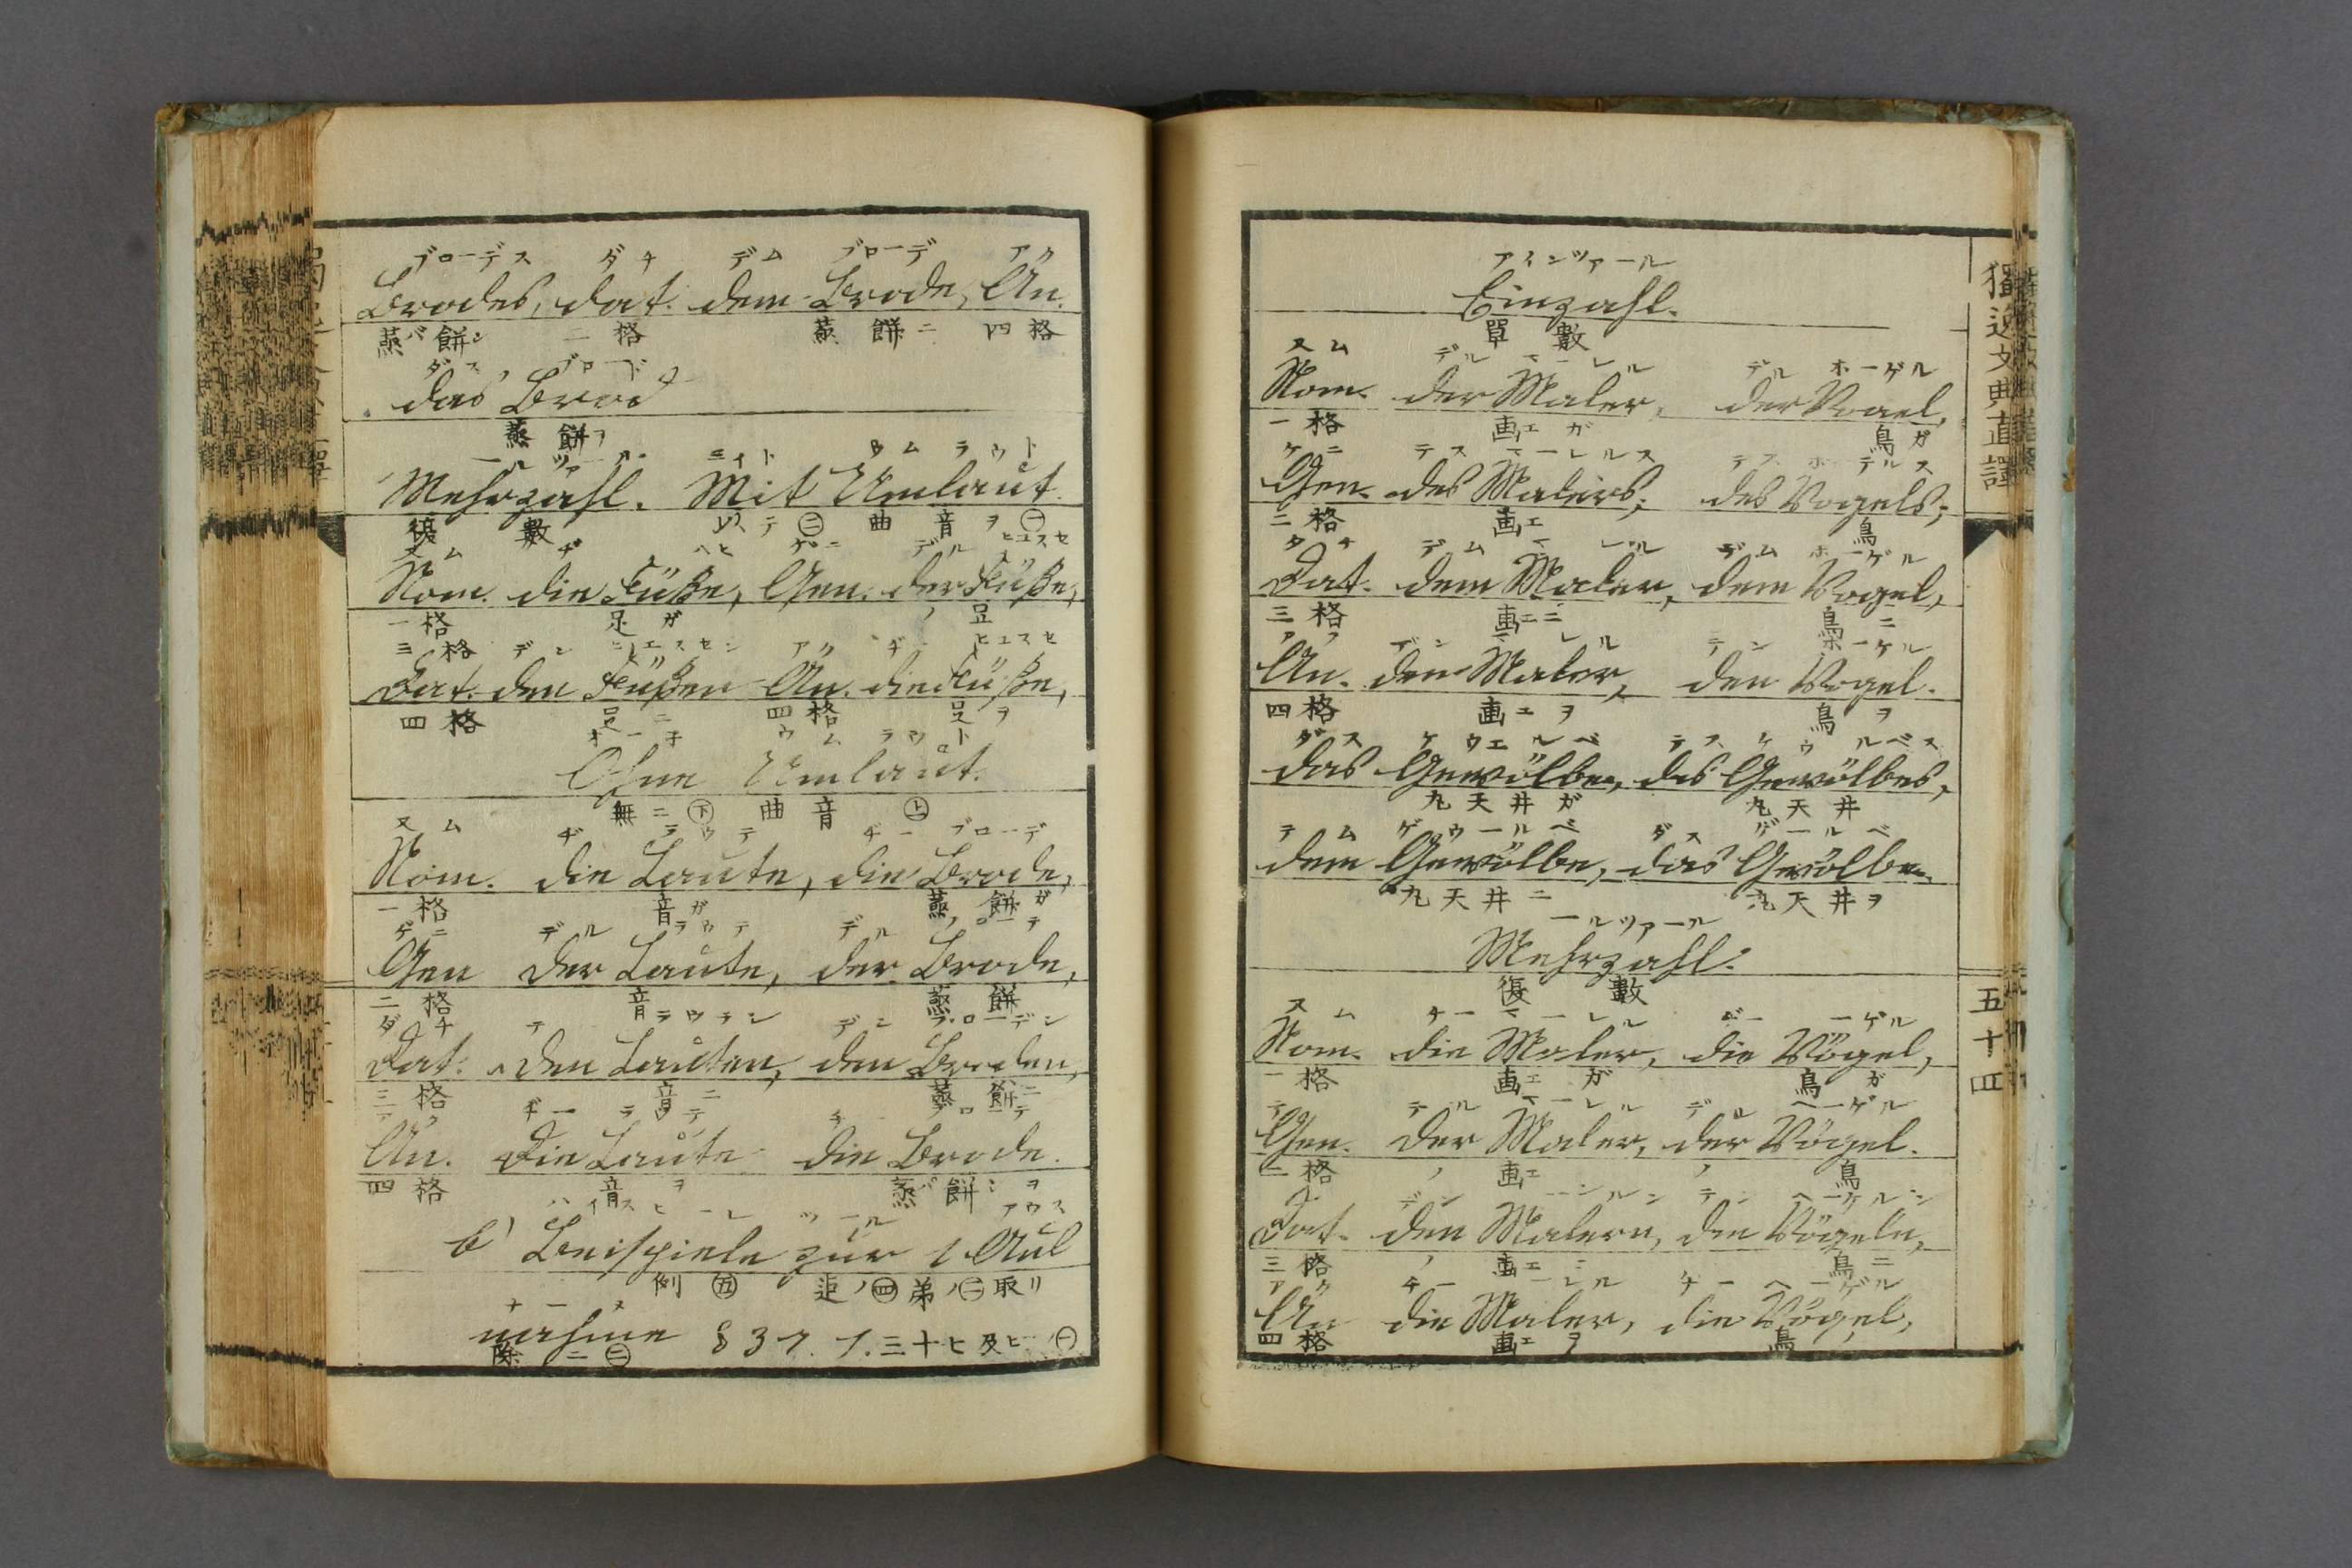 ブローデス ダチ デム ブローデ アク
Brodes, Dat. dem Brode, An.
蒸餅 二格 蒸餅ニ 四格
ダス ブロード
das Brod
蒸餅ヲ
ールツァール ミイト ウムラウト
Mehrzahl. Mit Umlaut.
復數 以テ㊁ 曲音ヲ㊀
ヌム ヂ ゲニ デル ヒユスセ
Nom. die Füße, Gen. der Füße,
一格 足ガ 足
三格 デン ヒユスセン アク ヂー ヒユスセ
Dat. den Füßen An. die Füße,
四格 足ニ 四格 足ヲ
オー子 ウムラウト
Ohne Umlaut.
無ニ㊦ 曲音㊤
ヌム ヂ ラウテ ヂー ブローデ
Nom. die Laute, die Brode,
一格 音ガ 蒸餅ガ
ゲニ デル ラウテ デル
Gen der Laute, der Brode,
二格 音 蒸餅
ダチ ラウテン デン ブローデン
Dat. den Lauten, den Broden,
三格 音ニ 蒸餅ニ
ヂー ラウテ
An. die Laute die Brode.
四格 音ヲ 蒸餅ヲ
ハイスヒーレ ツール アウス
b) Beispiele zur 1 Aus
例㊄ 迄ノ㊃ 弟ノ㊁ 取リ
ナーメ
nahme § 37. 1. 三十七及ヒ ㊀
除ニ㊂
獨逸文典直譯
アインツアール
Einzahl.
單數
ヌム デル マーレル デル ホーゲル
Nom. der Maler, der Vogel,
一格 画エガ 鳥ガ
ケニ テス マーレルス
Gen. des Malers, des Vogels,
二格 画エ 鳥
タチ デム マーレル デム ホーゲル
Dat. dem Maler, dem Vogel,
三格 画エニ 鳥ニ
アク デン マーレル テン ホーケル
An. den Maler, den Vogel.
四格 画エヲ 鳥ヲ
ダス ケウエルベ テス ケウルベス
das Gewölbe, des Gewölbes,
丸天井ガ 丸天井
テム ゲウールベ ダス ゲールベ
dem Gewölbe, das Gewölbe.
丸天井ニ 丸天井ヲ
ールツアール
Mehrzahl.
復數
ヌム チー マーレル ヂー ーゲル
Nom. die Maler, die Vögel,
一格 画エガ 鳥ガ
テル マーレル デル ヘーゲル
Gen. der Maler, der Vögel.
二格 画エ 鳥
デン テン ヘーケルン
Dat. den Malern, den Vögeln,
三格 画エニ 鳥ニ
アク チー ーレル チー ヘーゲル
An die Maler, die Vögel,
四格 画エヲ 鳥
五十四